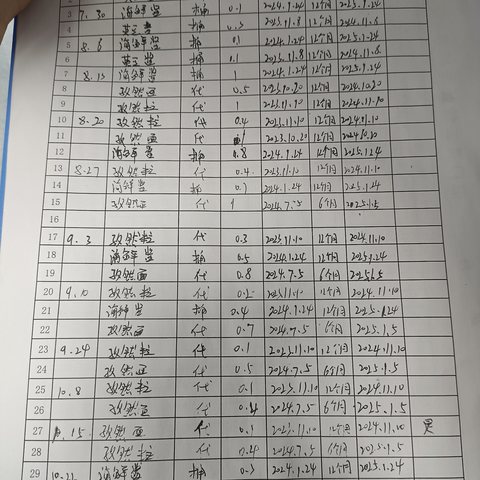 3 7.30 海鲜酱 桶 0.1 2024.1.24 12个月 2025.1.24
4 桶 0.3 2023.11.8 12个月 2024.11.8
5 8.6 海鲜酱 桶 0.1 2024.1.24 12个月 2025.1.24
6 桶 0.1 2023.11.8 12个月 2024.11.8
7 8.13 海鲜酱 桶 1 2024.1.24 12个月 2025.1.24
8 孜然面 代 0.5 2023.10.20 12个月 2024.10.20
9 孜然粒 代 1 2023.11.10 12个月 2024.11.10
10 8.20 孜然粒 代 0.4 2023.11.10 12个月 2024.11.10
11 孜然面 代 2023.10.20 12个月 2024.10.20
12 海鲜酱 桶 0.8 2024.1.24 12个月 2025.1.24
13 8.27 孜然粒 代 0.4 2023.11.10 12个月 2024.11.10
14 海鲜酱 桶 0.7 2024.1.24 12个月 2025.1.24
15 孜然面 代 1 2024.7.5 6个月 2025.1.5
16
17 9.3 孜然粒 代 0.3 2023.11.10 12个月 2024.11.10
18 海鲜酱 桶 0.5 2024.1.24 12个月 2025.1.24
19 孜然面 代 0.8 2024.7.5 6个月 2025.1.5
20 9.10 孜然粒 代 0.2 2023.11.10 12个月 2024.11.10
21 海鲜酱 桶 0.4 2024.1.24 12个月 2025.1.24
22 孜然面 代 0.7 2024.7.5 6个月 2025.1.5
23 9.24 孜然粒 代 0.1 2023.11.10 12个月 2024.11.10
24 孜然面 代 0.5 2024.7.5 6个月 2025.1.5
25 10.8 孜然粒 代 0.1 2023.11.10 12个月 2024.11.10
26 孜然面 代 0.4 2024.7.5 6个月 2025.1.5
27 10.15 孜然面 代 0.1 2023.11.10 12个月 2024.11.10
28 孜然粒 代 0.4 2024.7.5 6个月 2025.1.5
29 10.22 海鲜酱 桶 0.3 2024.1.24 12个月 2025.1.24